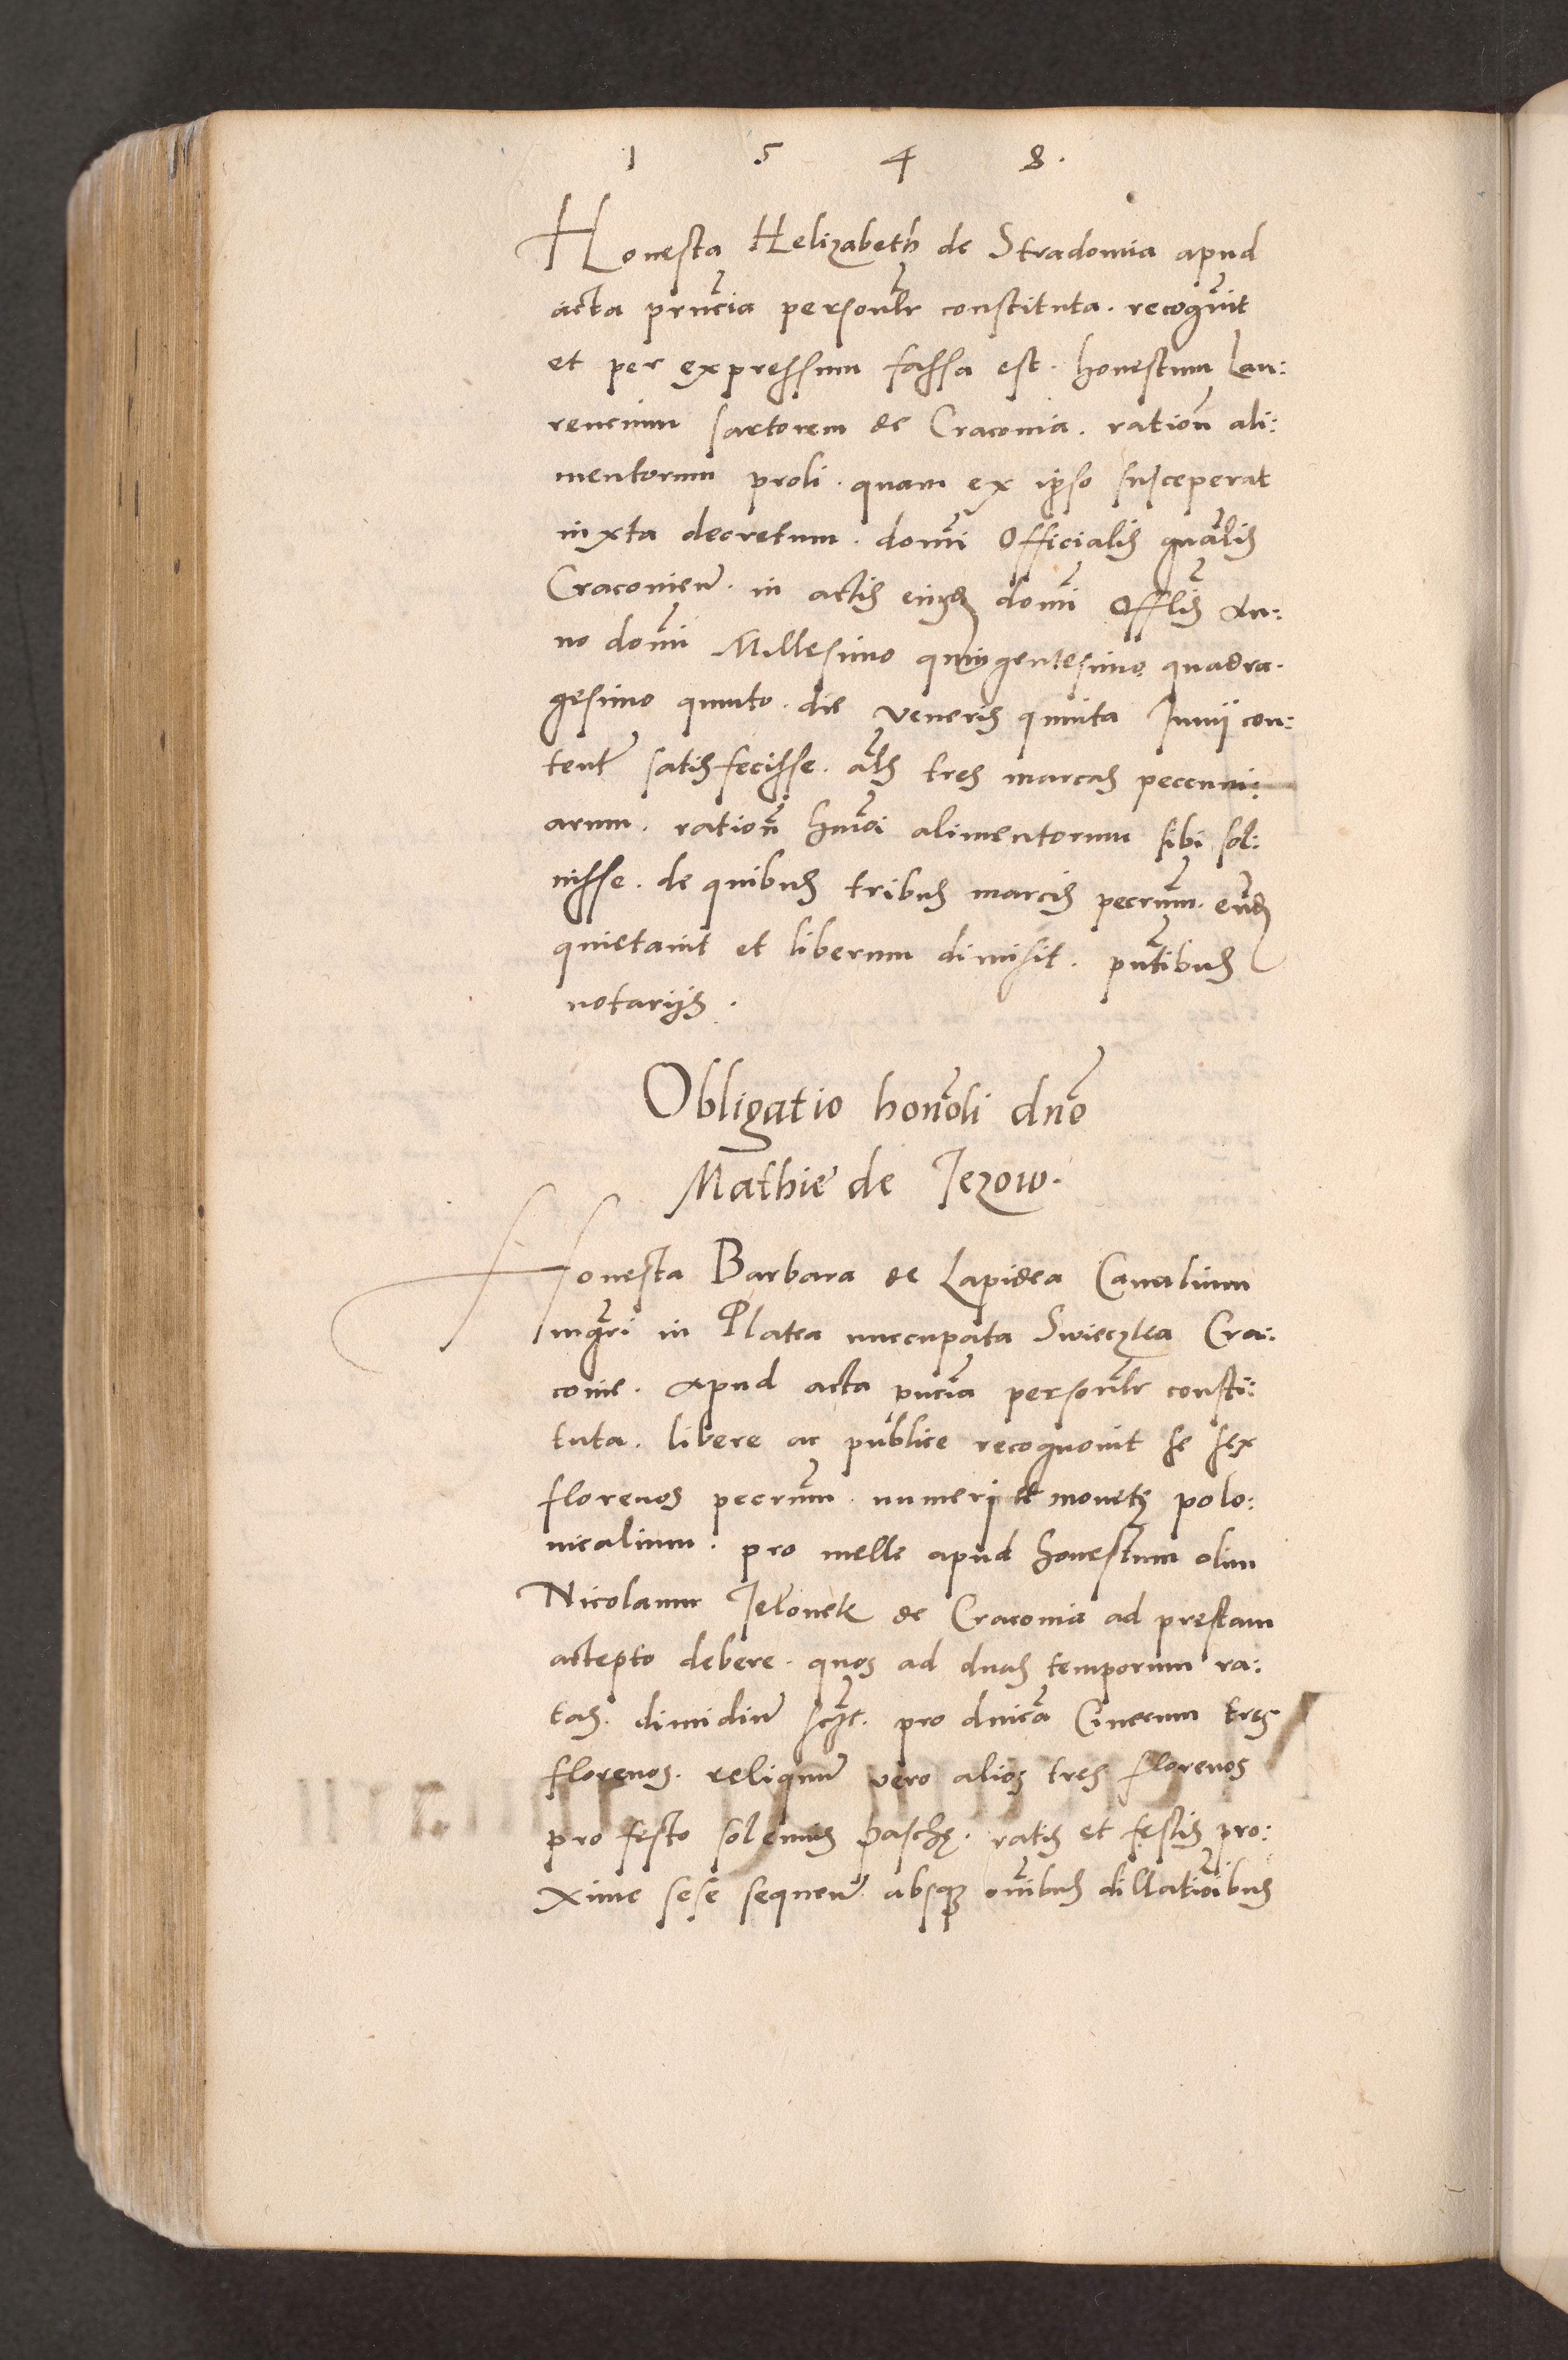 1 5 4 8.
Honesta Helizabeth de Stradomia apud
acta prñcia personl̃r constituta. recogñit
et per expressum fassa est. honestum Lau:
rencium sartorem de Cracovia. ration̄ ali:
mentorum proli. quam ex ipso susceperat
iuxta decretum. domĩ Officialis gnãlis
Cracovien̄. in actis eiusd̄ domĩ Offl̃is An:
no domĩ Millesimo quingentesimo quadra.
gesimo quinto. die veneris quinta Iunij con:
tent̄ satisfecisse. al̃s tres marcas peccuni:
arum. ration̄ hmõi alimentorum sibi sol:
visse. de quibus tribus marcis peccun̄. eund̄
quietavit et liberum dimisit. pñtibus
notarijs.
Obligatio honõli dño
Mathie de Jezow.
Honesta Barbara de Lapidea Canalium
mgr̃i in Platea nuccupata Swieczka Cra:
covie. Apud acta pñcia personl̃r consti:
tuta. libere ac publice recognovit se sex
florenos peccun̄. numeri et monetę polo:
nicalium. pro melle apud honestum olim
Nicolaum Jelonek de Cracovia ad prestam
accepto debere. quos ad duas temporum ra:
tas. dimidiũ sczt. pro dnica Cinerum tres
florenos. reliquũ vero alios tres florenos
pro festo solemnis paschę. ratis et festis pro:
xime sese sequen̄. absq̨ om̃ibus dillatiõibus